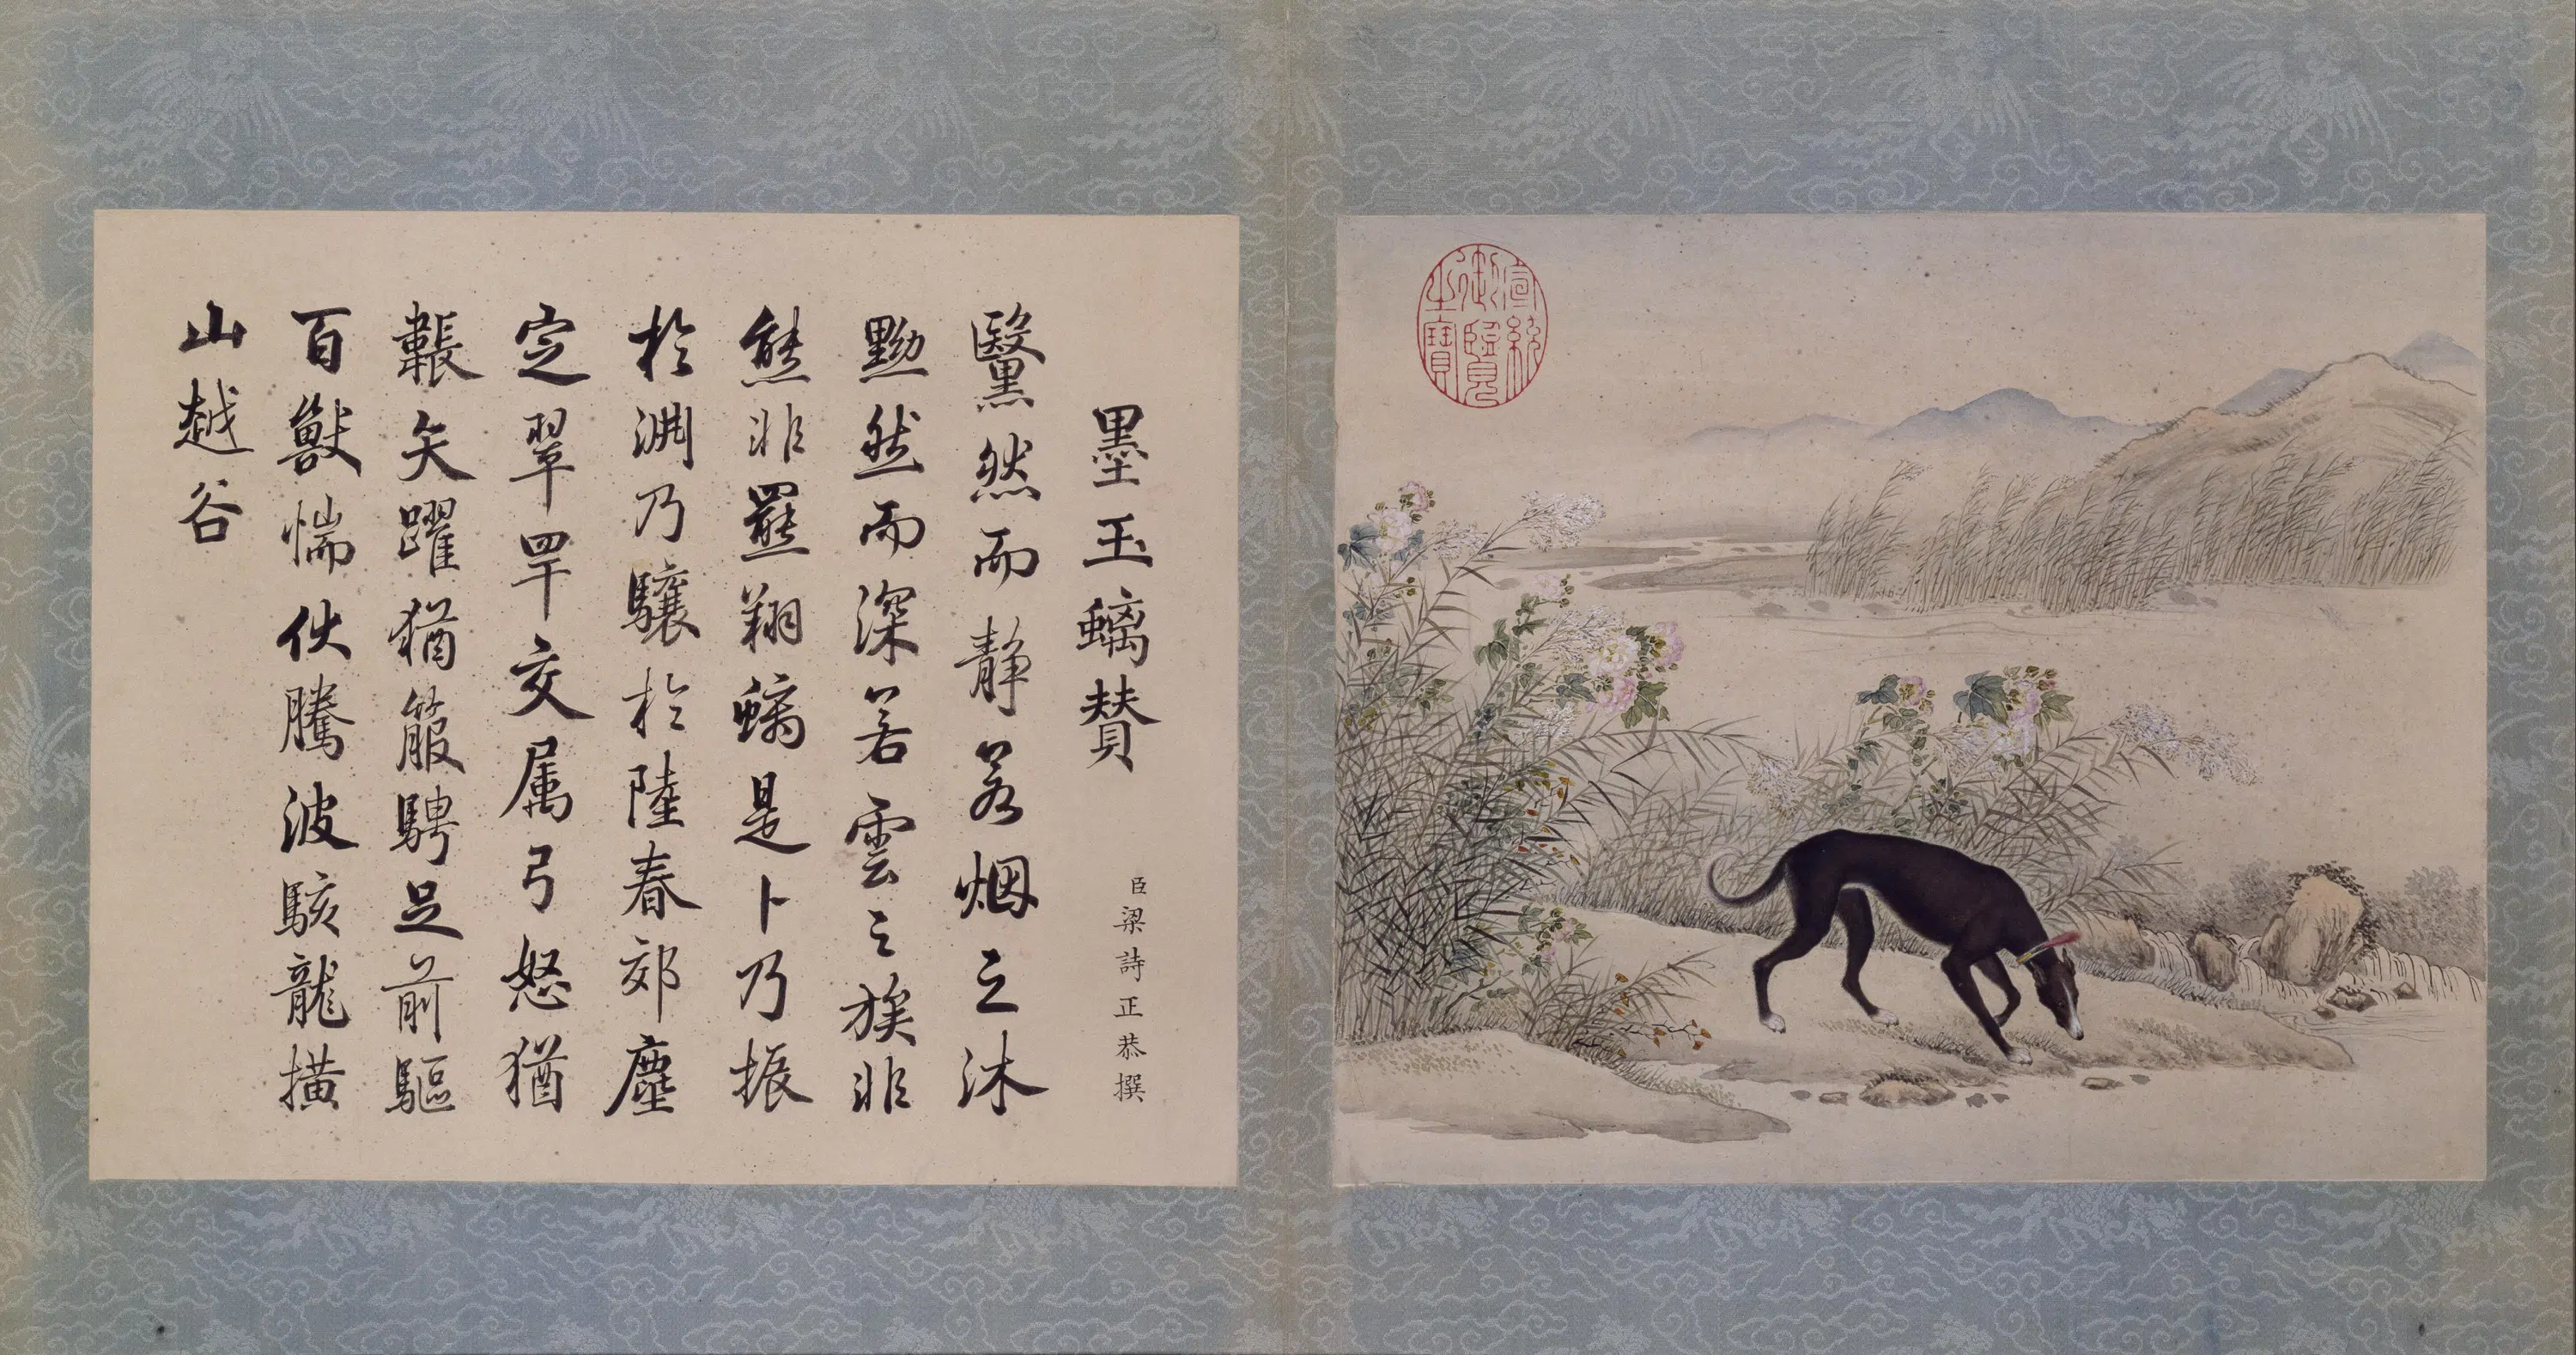 墨玉螭賛
臣梁詩正恭撰
黳然而靜若烟之沐
黝然而深若雲之族非
熊非羆翔螭是卜乃振
於淵乃驤於陸春郊塵
定翠罕交属弓怒猶
韔矢躍猶箙騁足前驅
百獸惴伏騰波駭龍橫
山越谷
淳紗御覽之寶